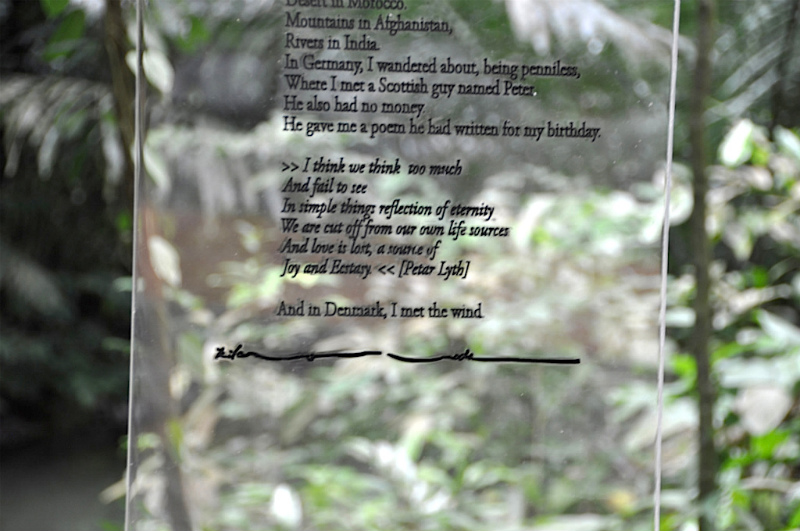 Desert in Morocco.
Mountains in Afghanistan,
Rivers in India.
In Germany, I wandered about, being penniless,
Where I met a Scottish guy named Peter.
He also had no money.
He gave me a poem he had written for my birthday.
>> I think we think too much
And fail to see
In simple things reflection of eternity
We are cut off from our own life sources
And love is lost, a source of
Joy and Ecstasy. << [Petar Lyth]
And in Denmark, I met the wind